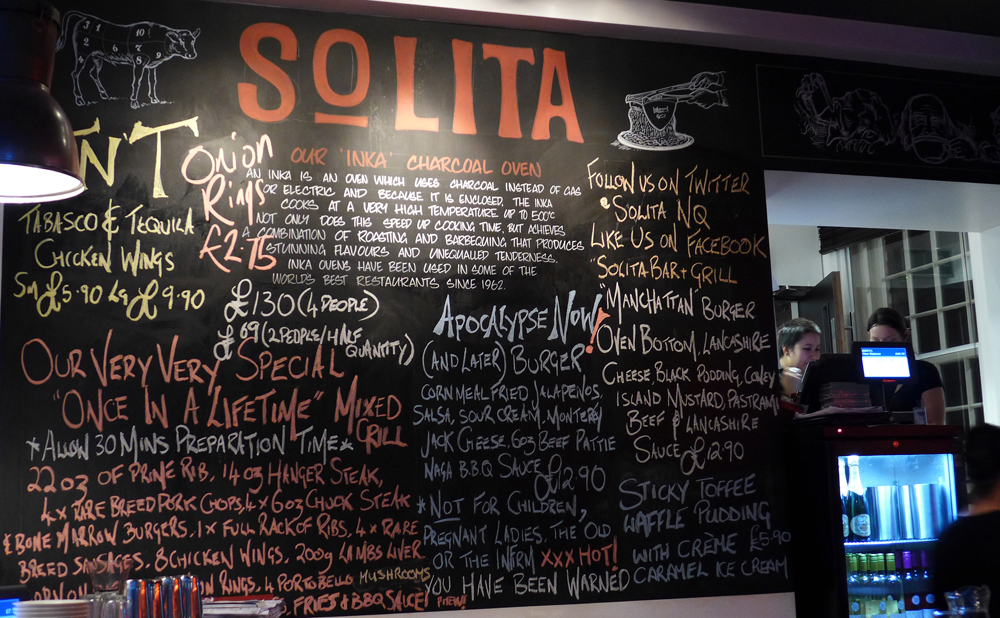 SOLITA
'N'T
TABASCO & TEQUILA
CHICKEN WINGS
Sm £5.90 Lg £9.90
Onion
Rings
£2.75
OUR 'INKA' CHARCOAL OVEN
AN INKA IS AN OVEN WHICH USES CHARCOAL INSTEAD OF GAS
OR ELECTRIC AND BECAUSE IT IS ENCLOSED, THE INKA
COOKS AT A VERY HIGH TEMPERATURE UP TO 500°C
NOT ONLY DOES THIS SPEED UP COOKING TIME, BUT ACHIEVES
A COMBINATION OF ROASTING AND BARBEQUING THAT PRODUCES
STUNNING FLAVOURS AND UNEQUALLED TENDERNESS.
INKA OVENS HAVE BEEN USED IN SOME OF THE
WORLDS BEST RESTAURANTS SINCE 1962.
£130 (4 PEOPLE)
£69 (2 PEOPLE/HALF
QUANTITY)
OUR VERY VERY SPECIAL
"ONCE IN A LIFETIME" MIXED
GRILL
*ALLOW 30 MINS PREPARATION TIME*
22oz OF PRIME RIB, 14oz HANGER STEAK,
4 x RARE BREED PORK CHOPS, 4 x 6oz CHUCK STEAK
& BONE MARROW BURGERS, 1 x FULL RACK OF RIBS, 4 x RARE
BREED SAUSAGES, 8 CHICKEN WINGS, 200g LAMBS LIVER
RINGS, 4 PORTOBELLO MUSHROOMS
FRIES & BBQ SAUCE! PHEW!
APOCALYPSE NOW!
(AND LATER) BURGER
CORNMEAL FRIED JALAPENOS,
SALSA, SOUR CREAM, MONTEREY
JACK CHEESE, 6oz BEEF PATTIE
NAGA B.B.Q SAUCE £12.90
*NOT FOR CHILDREN,
PREGNANT LADIES, THE OLD
OR THE INFIRM XXX HOT!
YOU HAVE BEEN WARNED
FOLLOW US ON TWITTER
@SOLITA NQ
LIKE US ON FACEBOOK
"SOLITA BAR + GRILL
"MANCHATTAN" BURGER
OVEN BOTTOM, LANCASHIRE
CHEESE, BLACK PUDDING, CONEY
ISLAND MUSTARD, PASTRAMI
BEEF & LANCASHIRE
SAUCE £12.90
STICKY TOFFEE
WAFFLE PUDDING
WITH CRÈME £5.90
CARAMEL ICE CREAM